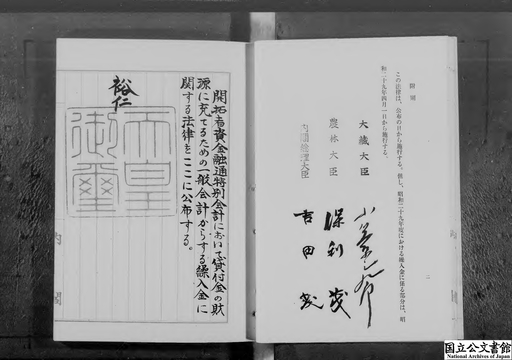 附則
この法律は、公布の日から施行する。但し、昭和二十九年度における繰入金に係る部分は、昭
和二十九年四月一日から施行する。
二
大蔵大臣
農林大臣 保利茂
内閣総理大臣 吉田茂
開拓者資金融通特別会計において貸付金の財
源に充てるための一般会計からする繰入金に
関する法律をここに公布する。
裕仁
天皇
御璽
国立公文書館
National Archives of Japan